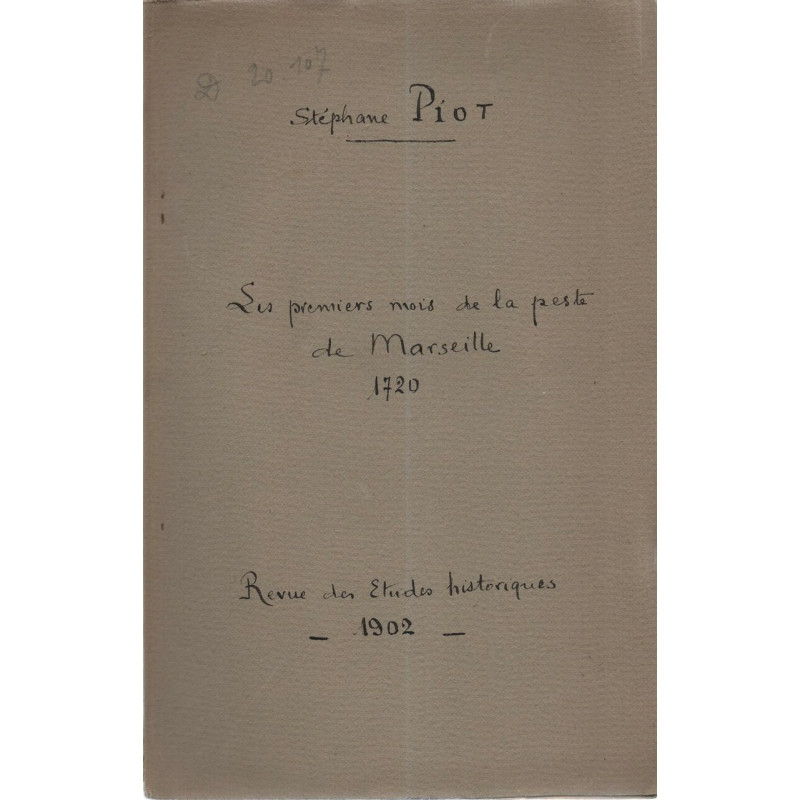 D 20.107
Stéphane PIOT
Les premiers mois de la peste
de Marseille
1720
Revue des Etudes historiques
— 1902 —